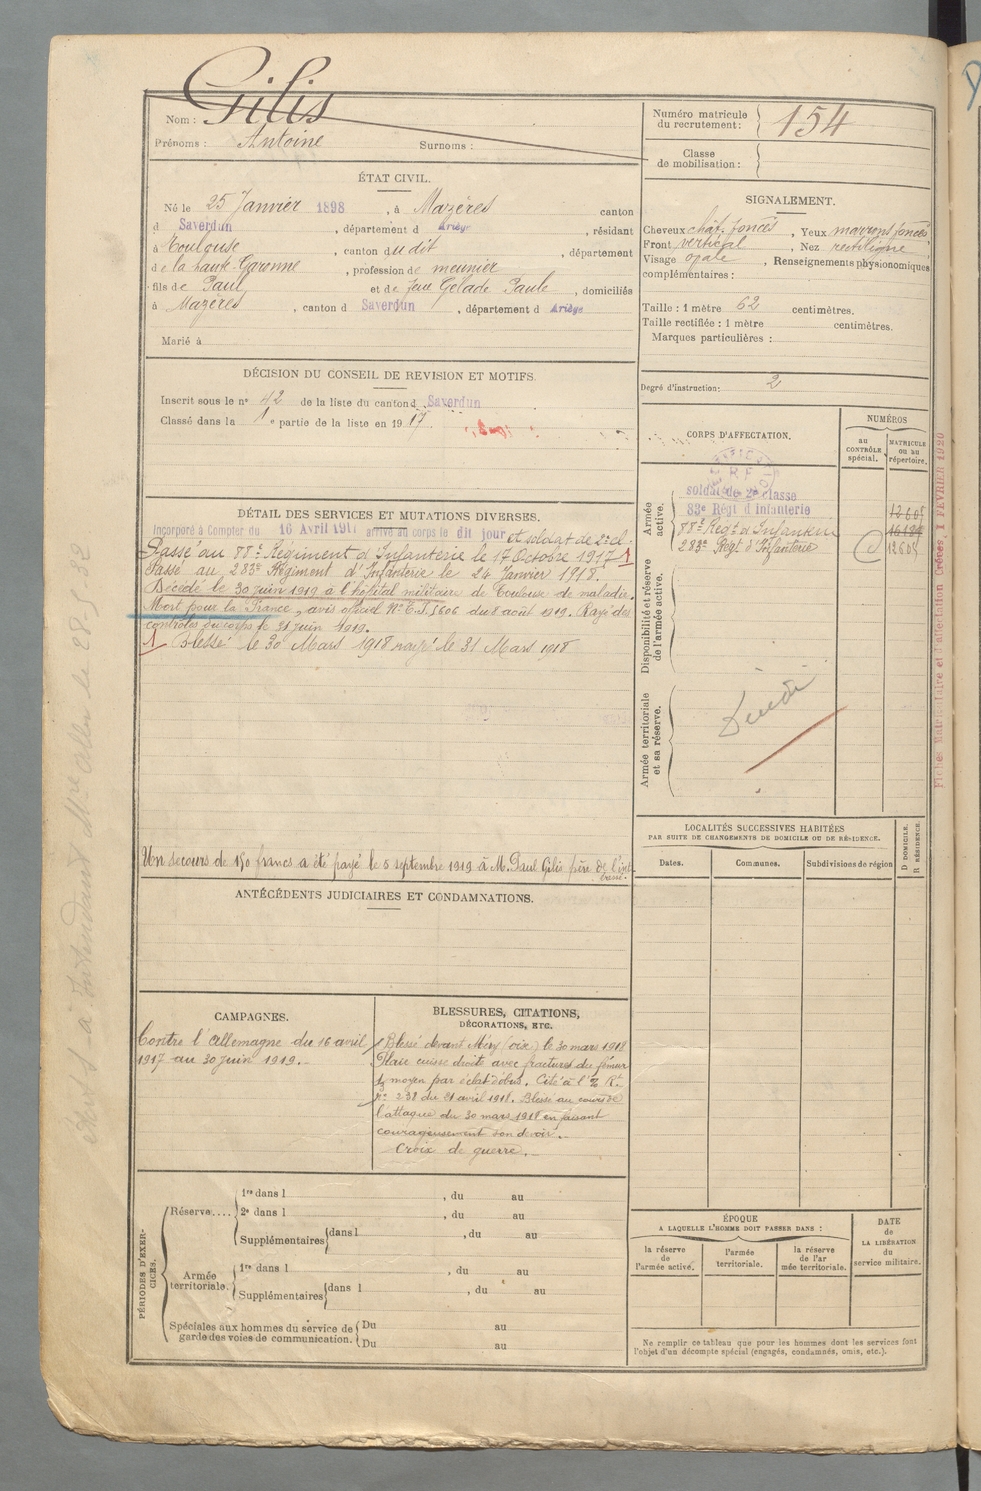 Nom : Gilis
Prénoms : Antoine Surnoms :
Numéro matricule du recrutement : 154
Classe de mobilisation :
ÉTAT CIVIL.
Né le 25 Janvier 1898, à Mazères canton
d Saverdun, département d Ariège, résidant
à Toulouse, canton du dit, département
de la haute-Garonne, profession de meunier
fils de Paul et de feue Gelade Paule, domiciliés
à Mazères, canton d Saverdun, département d Ariège
Marié à
SIGNALEMENT.
Cheveux chât. foncés, Yeux marrons foncés
Front vertical, Nez rectiligne
Visage ovale, Renseignements physionomiques
complémentaires :
Taille : 1 mètre 62 centimètres.
Taille rectifiée : 1 mètre centimètres.
Marques particulières :
Degré d'instruction : 2
DÉCISION DU CONSEIL DE REVISION ET MOTIFS.
Inscrit sous le n° 42 de la liste du canton d Saverdun
Classé dans la 1e partie de la liste en 1917.
DÉTAIL DES SERVICES ET MUTATIONS DIVERSES.
Incorporé à Compter du 16 Avril 1917 arrivé au corps le dit jour et soldat de 2e cl.
Passé au 88e Régiment d'Infanterie le 17 Octobre 1917 1
Passé au 283e Régiment d'Infanterie le 24 Janvier 1918.
Décédé le 30 juin 1919 à l'hôpital militaire de Toulouse de maladie.
Mort pour la France, avis officiel N° E.T. 5606 du 8 août 1919. Rayé des
contrôles du corps le 31 juin 1919.
1 Blessé le 30 Mars 1918 rayé le 31 Mars 1918
Un secours de 150 francs a été payé le 5 septembre 1919 à M. Paul Gilis père de l'intéressé.
CORPS D'AFFECTATION.
NUMÉROS
au CONTRÔLE spécial.
MATRICULE ou au répertoire.
Armée active.
soldat de 2e classe
83e Régt d'infanterie 12605
88e Régt d'Infanterie
283e Régt d'Infanterie 12605
Disponibilité et réserve de l'armée active.
Armée territoriale et sa réserve.
LOCALITÉS SUCCESSIVES HABITÉES
PAR SUITE DE CHANGEMENTS DE DOMICILE OU DE RÉSIDENCE.
Dates. Communes. Subdivisions de région D DOMICILE. R RÉSIDENCE.
ANTÉCÉDENTS JUDICIAIRES ET CONDAMNATIONS.
CAMPAGNES.
Contre l'Allemagne du 16 avril
1917 au 30 juin 1919.
BLESSURES, CITATIONS,
DÉCORATIONS, ETC.
Blessé devant Méry (oise) le 30 mars 1918
Plaie cuisse droite avec fractures du fémur
moyen par éclat d'obus. Cité à l'
n° 238 du 21 avril 1918. Blessé au cours de
l'attaque du 30 mars 1918 en faisant
courageusement son devoir.
Croix de guerre.
PÉRIODES D'EXERCICES.
Réserve....
1re dans l , du au
2e dans l , du au
Supplémentaires dans l , du au
Armée territoriale.
1re dans l , du au
Supplémentaires dans l , du au
Spéciales aux hommes du service de garde des voies de communication.
Du au
Du au
ÉPOQUE
A LAQUELLE L'HOMME DOIT PASSER DANS :
la réserve de l'armée active.
l'armée territoriale.
la réserve de l'armée territoriale.
DATE de LA LIBÉRATION du service militaire.
Ne remplir ce tableau que pour les hommes dont les services font
l'objet d'un décompte spécial (engagés, condamnés, omis, etc.).